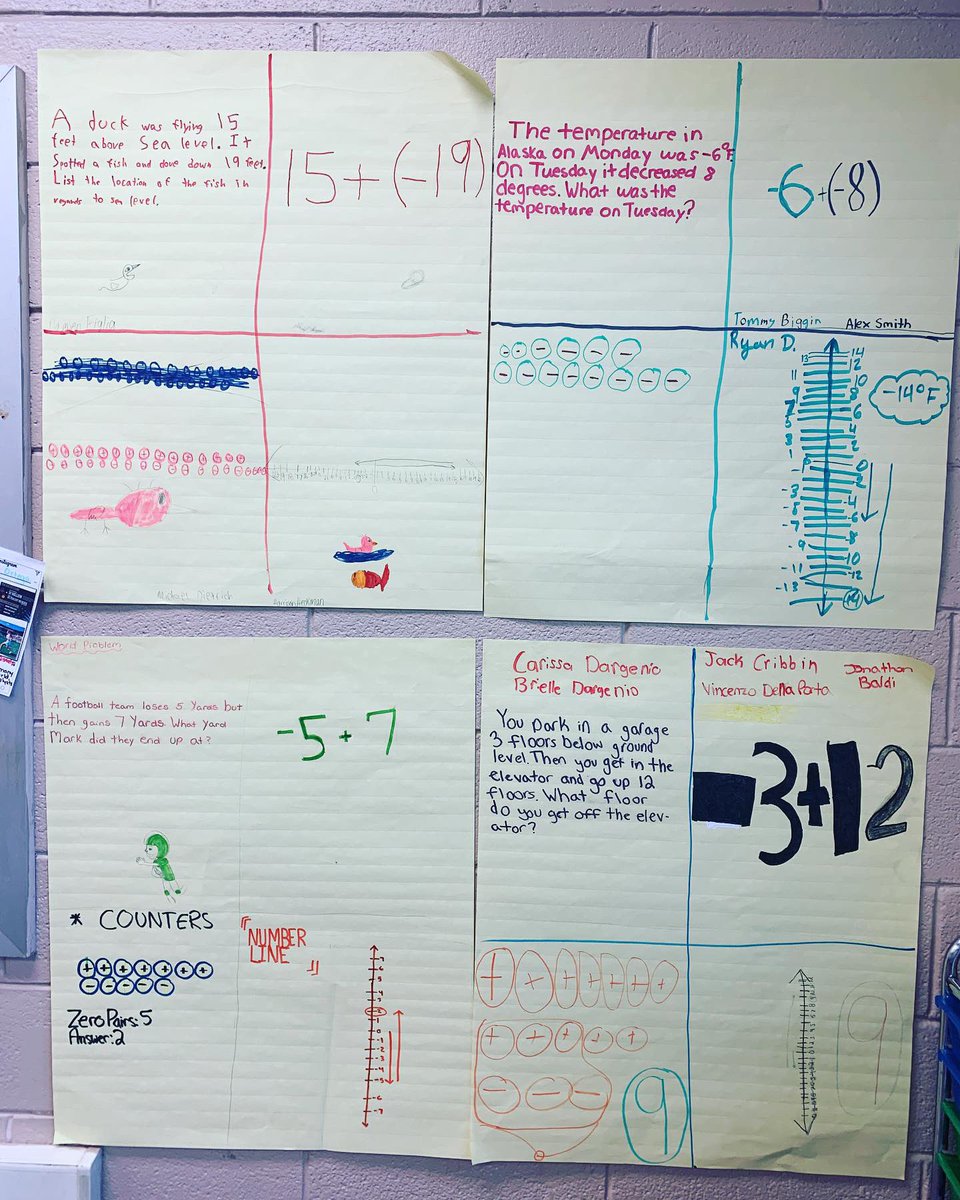 A duck was flying 15
feet above Sea level. It
Spotted a fish and dove down 19 feet.
List the location of the fish in
regards to sea level.
15+(-19)
Michael Dietrich
The temperature in
Alaska on Monday was -6°F
On Tuesday it decreased 8
degrees. What was the
temperature on Tuesday?
-6+(-8)
Tommy Biggin Alex Smith
Ryan D.
-14°F
13 14
12
11
10
9
8
7
6
5
4
3
2
1
0
-1
-2
-3
-4
-5
-6
-7
-8
-9
10
-11
-12
-13
14
Word Problem
A football team loses 5 Yards but
then gains 7 Yards. What yard
Mark did they end up at?
-5+7
* COUNTERS
+ + + + + + +
- - - - -
Zero Pairs: 5
Answer: 2
NUMBER
LINE
Carissa Dargenio
Brielle Dargenio
You park in a garage
3 floors below ground
level. Then you get in the
elevator and go up 12
floors. What floor
do you get off the elev-
ator?
Jack Cribbin Jonathan
Vincenzo DellaPorta Baldi
-3+12
+ + + + + + +
+ + + + +
- - -
9
9